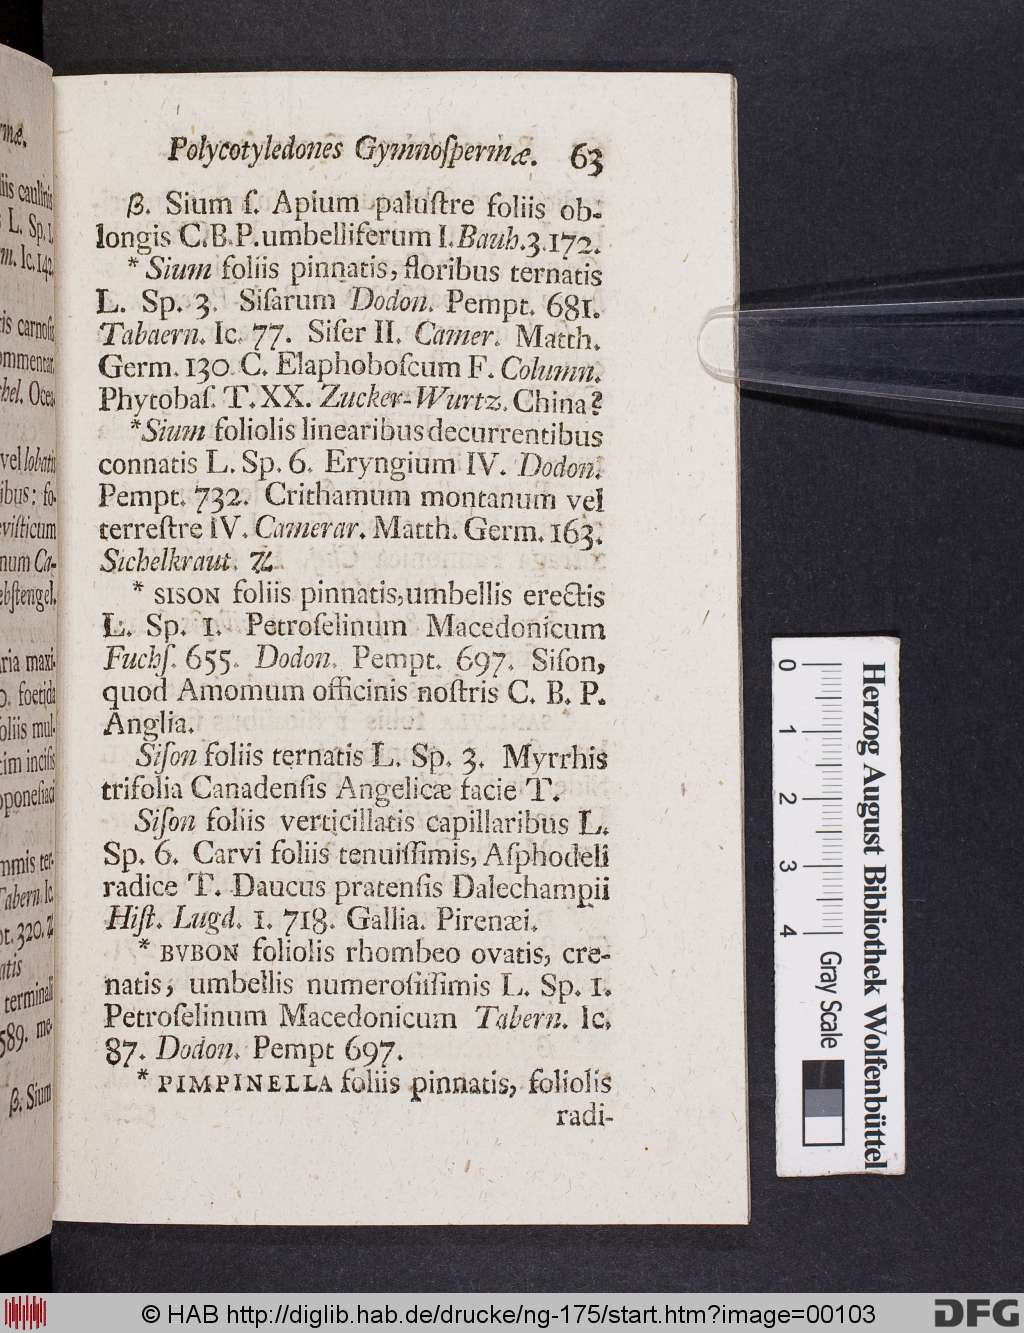 Polycotyledones Gymnoſpermæ. 63
β. Sium ſ. Apium paluſtre foliis ob-
longis C.B.P. umbelliferum I. Bauh. 3. 172.
* Sium foliis pinnatis, floribus ternatis
L. Sp. 3. Siſarum Dodon. Pempt. 681.
Tabaern. Ic. 77. Siſer II. Camer. Matth.
Germ. 130 C. Elaphoboſcum F. Column.
Phytobaſ. T. XX. Zucker-Wurtz. China?
*Sium foliolis linearibus decurrentibus
connatis L. Sp. 6. Eryngium IV. Dodon.
Pempt. 732. Crithamum montanum vel
terreſtre IV. Camerar. Matth. Germ. 163.
Sichelkraut. ♃.
* SISON foliis pinnatis, umbellis erectis
L. Sp. 1. Petroſelinum Macedonicum
Fuchſ. 655. Dodon. Pempt. 697. Siſon,
quod Amomum officinis noſtris C. B. P.
Anglia.
Siſon foliis ternatis L. Sp. 3. Myrrhis
trifolia Canadenſis Angelicæ facie T.
Siſon foliis verticillatis capillaribus L.
Sp. 6. Carvi foliis tenuiſſimis, Aſphodeli
radice T. Daucus pratenſis Dalechampii
Hiſt. Lugd. 1. 718. Gallia. Pirenæi.
* BVBON foliolis rhombeo ovatis, cre-
natis, umbellis numeroſiſſimis L. Sp. 1.
Petroſelinum Macedonicum Tabern. Ic.
87. Dodon. Pempt 697.
* PIMPINELLA foliis pinnatis, foliolis
radi-
iis caulinis
L. Sp. 1.
m. Ic. 142.
is carnoſis
ommentar.
hel. Ocea.
vel lobatis
ibus: fo-
viſticum
num Ca-
ebſtengel.
ria maxi-
o. foetida
foliis mul-
im inciſis
oponeſiaci
mmis ter-
Tabern. Ic.
pt. 320. ♃
atis
terminali
589. me-
β. Sium
0 1 2 3 4
Gray Scale
Herzog August Bibliothek Wolfenbüttel
© HAB http://diglib.hab.de/drucke/ng-175/start.htm?image=00103
DFG